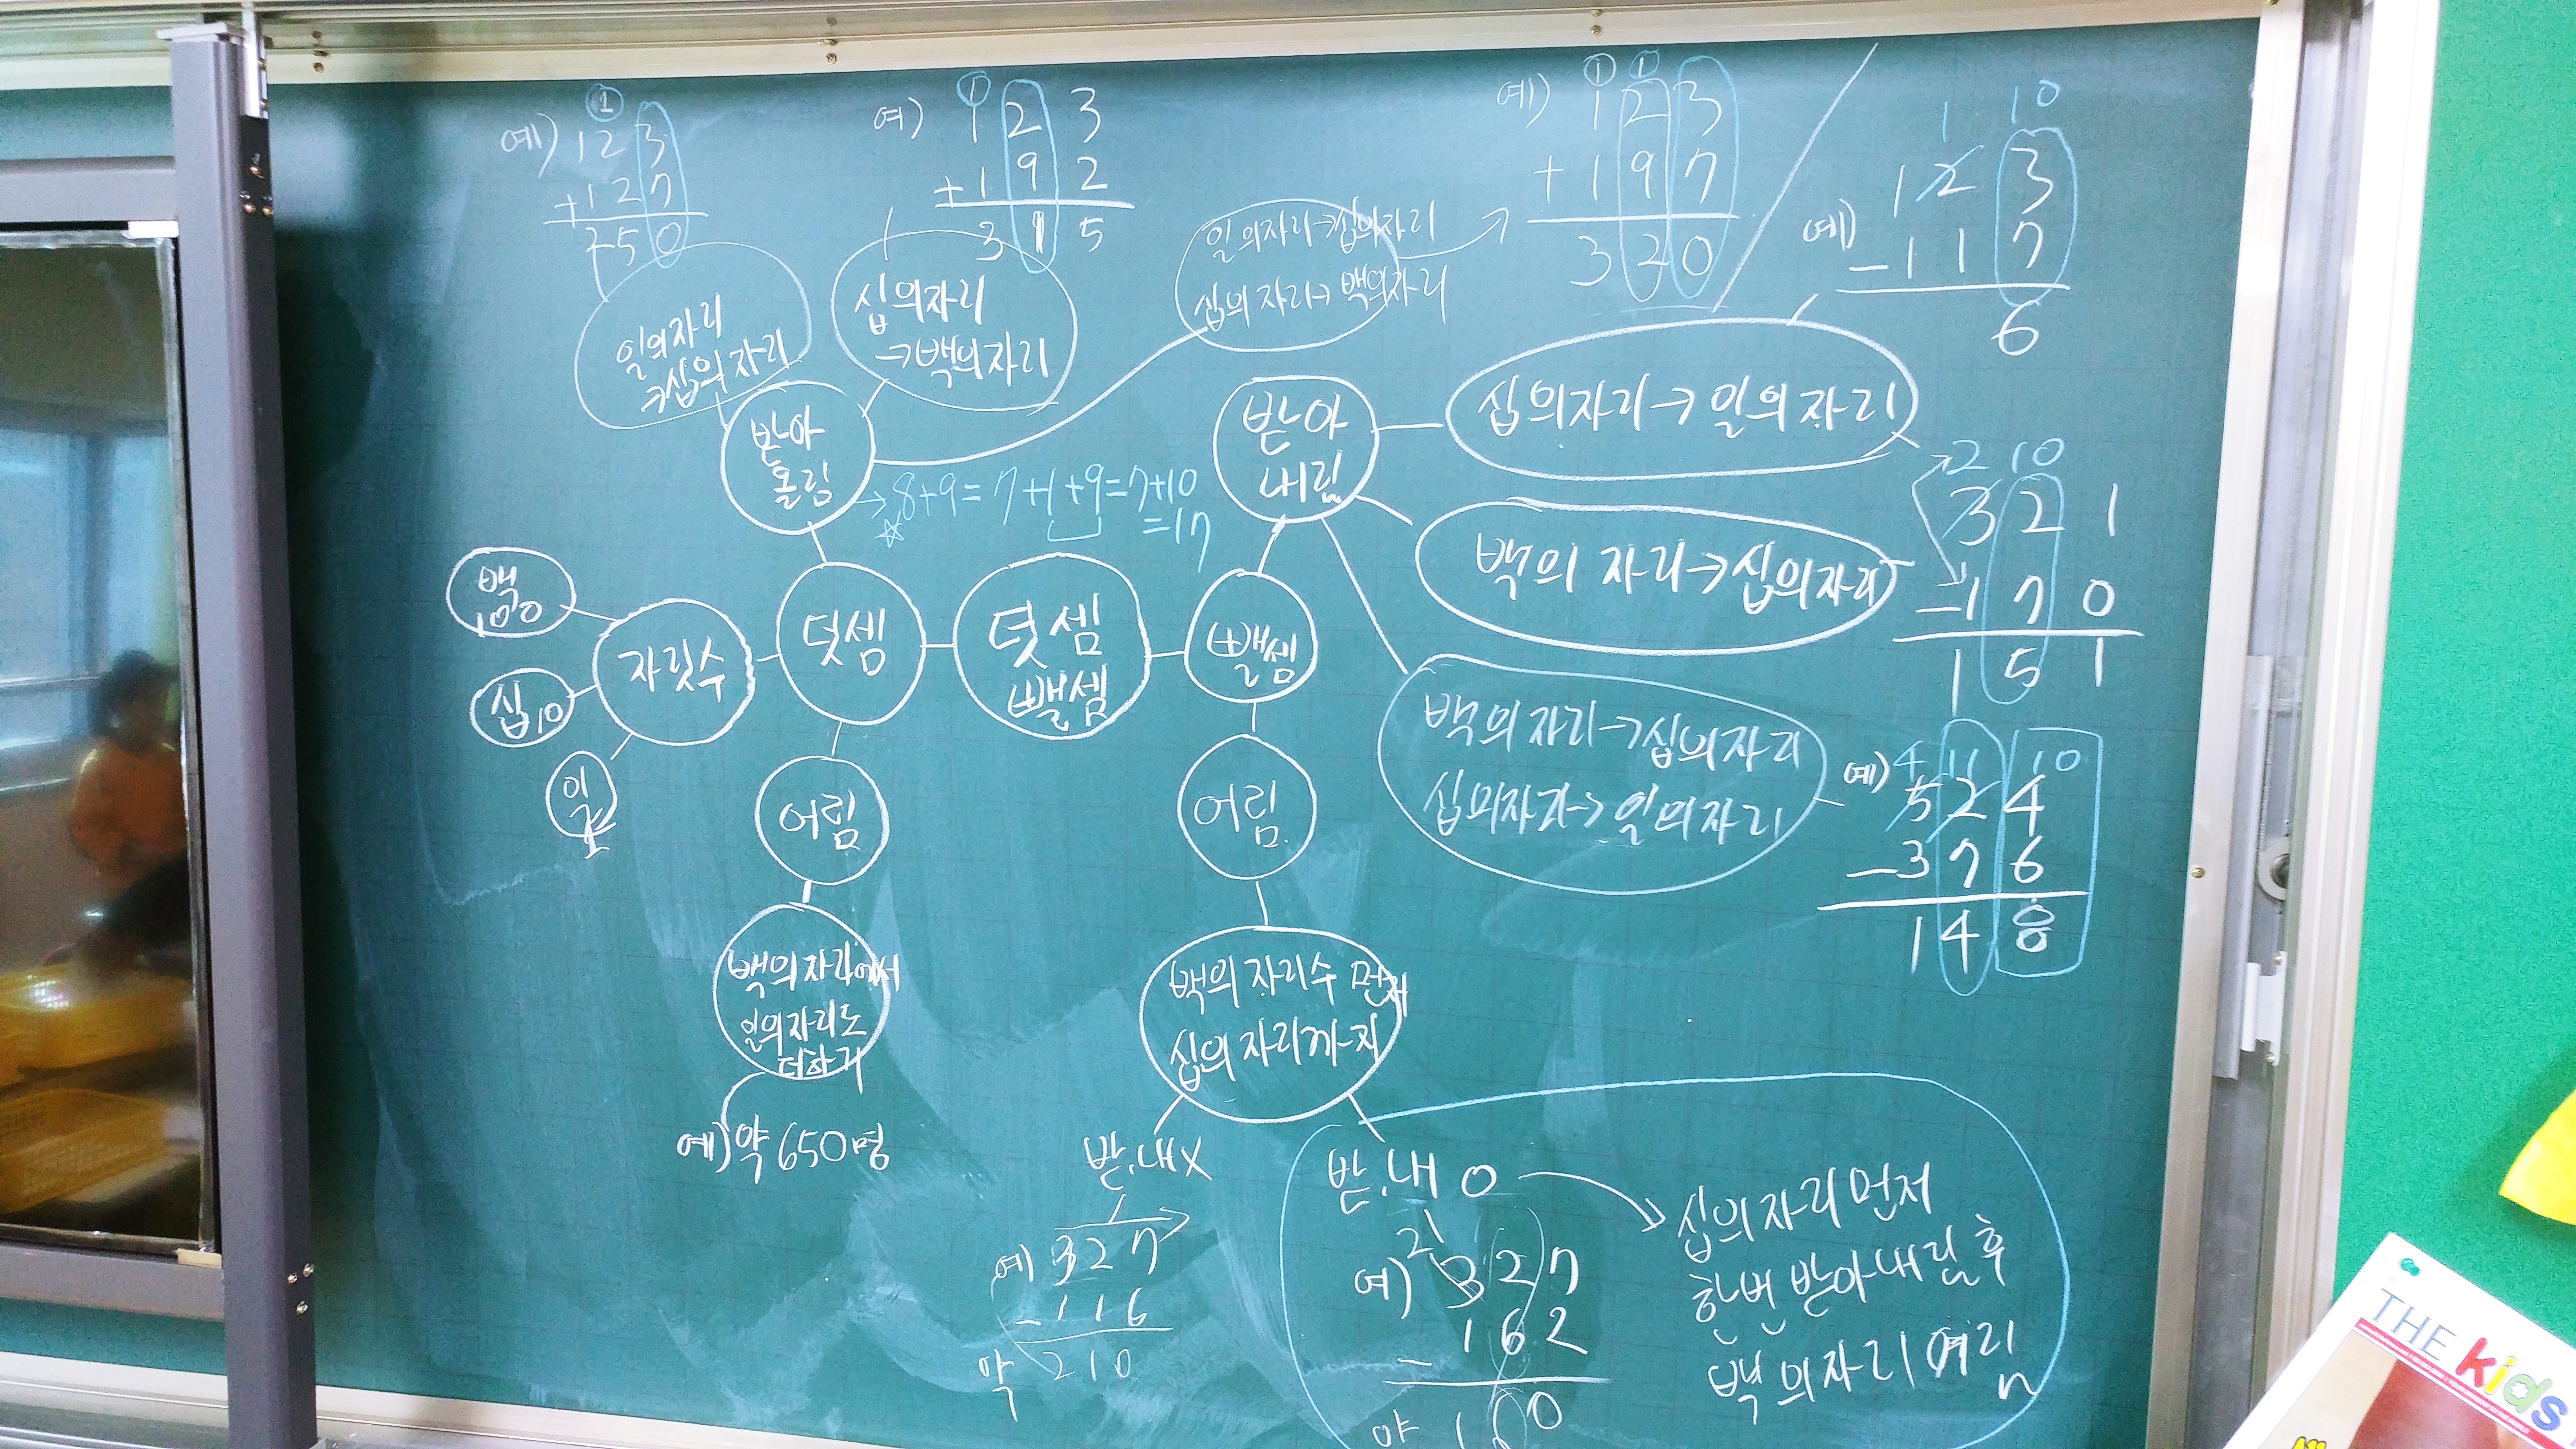 예) ①
123
+127
250
예) ①
1 2 3
+ 1 9 2
3 1 5
예) ① ①
1 2 3
+ 1 9 7
3 2 0
1 10
예) 1 2 3
- 1 1 7
6
일의자리
→십의자리
십의자리
→백의자리
일의자리→십의자리
십의자리→백의자리
받아
올림
→ 8+9 = 7+1+9 = 7+10
☆ = 17
받아
내림
십의자리→일의자리
백의 자리→십의자리
2 10
3 2 1
- 1 7 0
1 5 1
백의 자리→십의자리
십의자리→일의자리
예) 4 11 10
5 2 4
- 3 7 6
1 4 8
백
100
십 10
일
1
자릿수
덧셈
덧셈
뺄셈
뺄셈
어림
어림
백의 자리에서
일의자리도
더하기
예) 약 650명
백의 자리수 먼저
십의 자리까지
받.내 X
예) 3 2 7
- 1 1 6
약 2 1 0
받.내 O
2 1
예) 3 2 7
1 6 2
-
약 1 6 0
십의자리먼저
한번 받아내림 후
백의자리 어림
THE kids